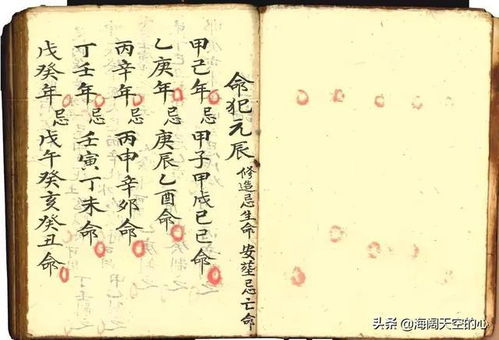 命犯元辰 修造忌生命 安葬忌亡命
甲己年忌 甲子甲戌己巳命
乙庚年忌 庚辰乙酉命
丙辛年忌 丙申辛卯命
丁壬年忌 壬寅丁未命
戊癸年忌 戊午癸亥癸丑命
头条 @海阔天空的心